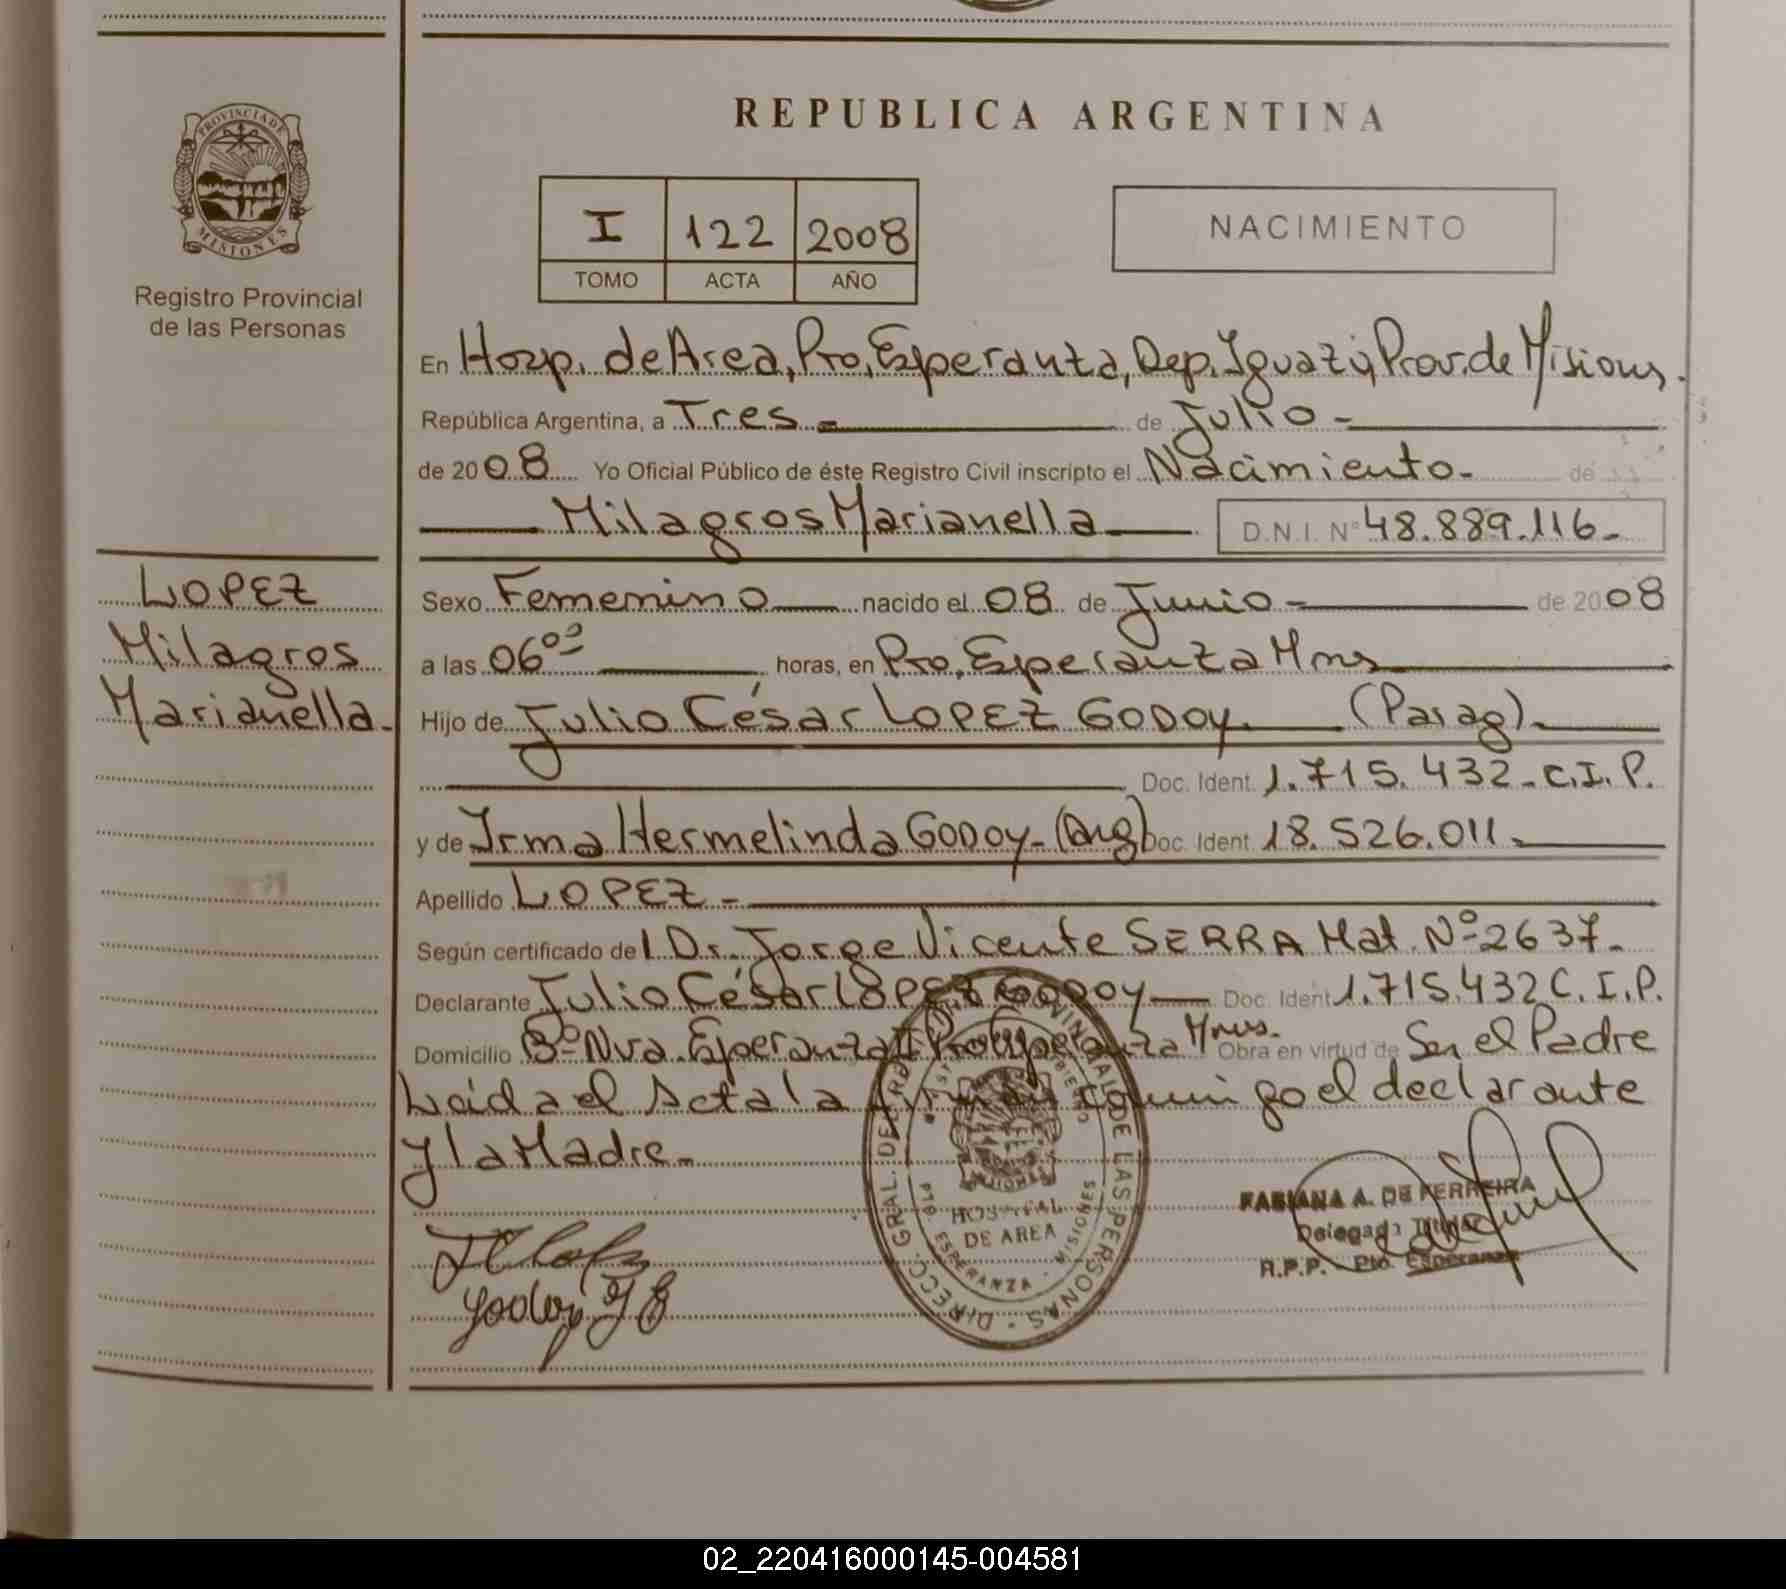 REPUBLICA ARGENTINA
PROVINCIA DE
MISIONES
Registro Provincial
de las Personas
I 122 2008
TOMO ACTA AÑO
NACIMIENTO
En Hosp. de Area, Pto, Esperanza, Dep. Iguazú, Prov. de Misiones.
República Argentina, a Tres - de Julio -
de 2008 Yo Oficial Público de éste Registro Civil inscripto el Nacimiento - de
Milagros Marianella D.N.I. Nº 48.889.116-
LOPEZ
Milagros
Marianella.
Sexo Femenino nacido el 08 de Junio - de 2008
a las 06⁰⁰ horas, en Pto. Esperanza Mnes
Hijo de Julio César LOPEZ GODOY. (Parag).
Doc. Ident. 1.715.432-C.I.P.
y de Irma Hermelinda GODOY- (Arg) Doc. Ident. 18.526.011-
Apellido LOPEZ -
Según certificado del Dr. Jorge Vicente SERRA Mat. Nº 2637-
Declarante Julio César LOPEZ GODOY Doc. Ident. 1.715.432 C.I.P.
Domicilio Bº Nva. Esperanza II Pto Esperanza Mnes. Obra en virtud de Ser el Padre
Leida el Acta la firman conmigo el declarante
y la Madre.-
DIRECC. GRAL. DE PROVINCIAL DE LAS PERSONAS
HOSPITAL
DE AREA
PTO. ESPERANZA - MISIONES
FABIANA A. DE FERREIRA
Delegada Titular
R.P.P. Pto. Esperanza
Godoy I H
02_220416000145-004581